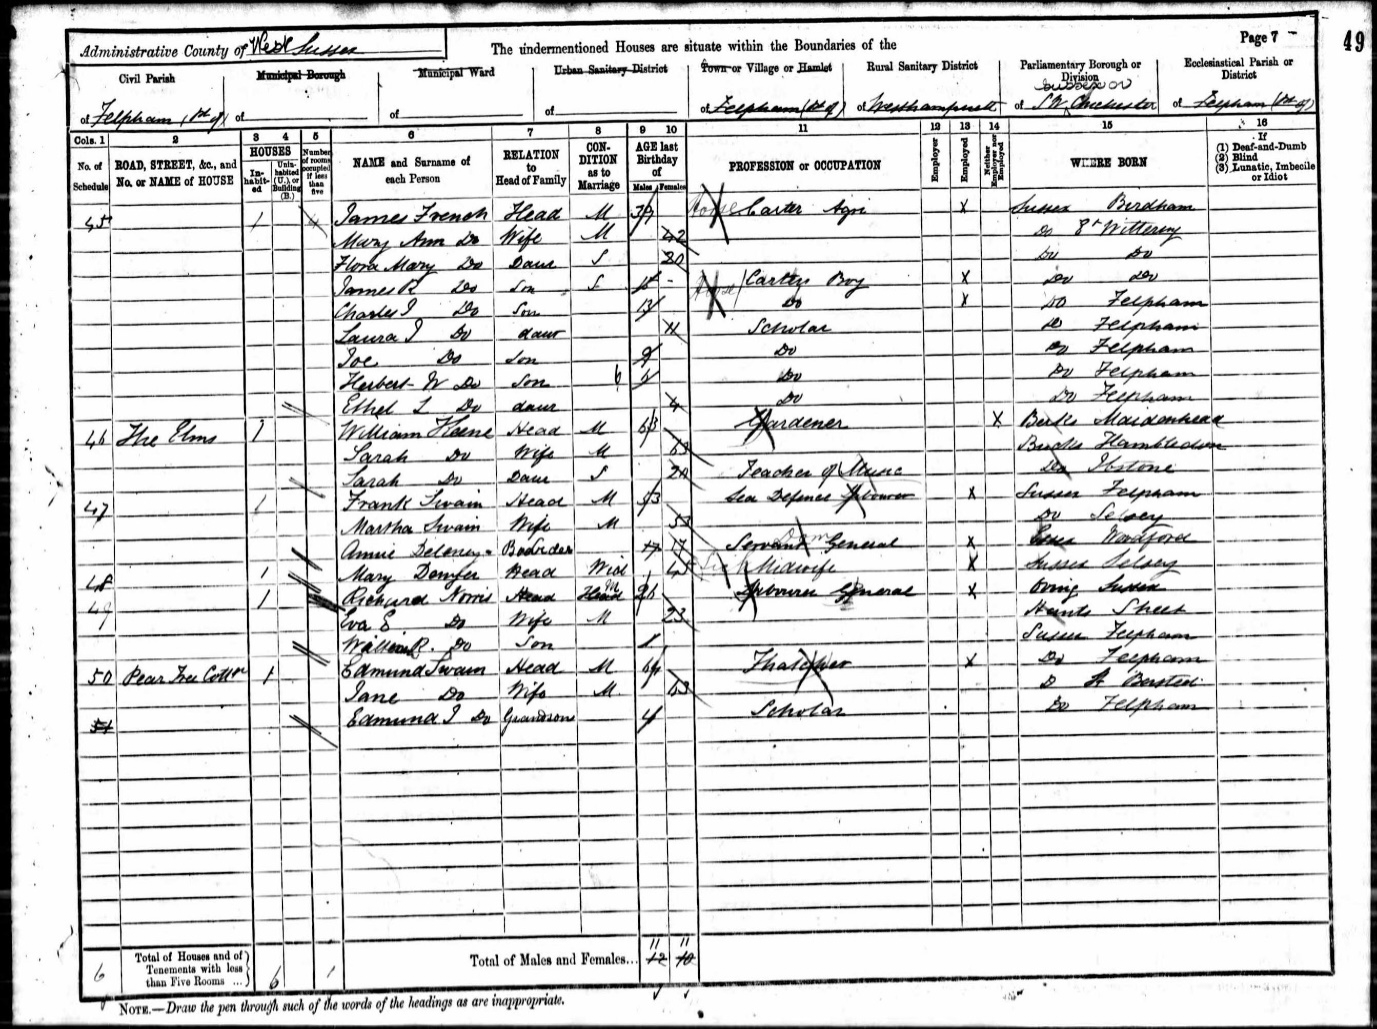 Administrative County of West Sussex
The undermentioned Houses are situate within the Boundaries of the
Page 7
49
Civil Parish
Municipal Borough
Municipal Ward
Urban Sanitary District
Town or Village or Hamlet
Rural Sanitary District
Parliamentary Borough or Division
Ecclesiastical Parish or District
of Felpham (Pt of) of of of of Felpham (Pt of) of Westhampnett of S.W. Chichester of Felpham (Pt of)
Cols. 1 2 3 4 5 6 7 8 9 10 11 12 13 14 15 16
No. of Schedule
ROAD, STREET, &c., and No. or NAME of HOUSE
HOUSES
In-habit-ed
Unin-habited (U.), or Building (B.)
Number of rooms occupied if less than five
NAME and Surname of each Person
RELATION to Head of Family
CON-DITION as to Marriage
AGE last Birthday of
Males Females
PROFESSION or OCCUPATION
Employer
Employed
Neither Employer nor Employed
WHERE BORN
If
(1) Deaf-and-Dumb
(2) Blind
(3) Lunatic, Imbecile or Idiot
45 1 4 James French Head M 39 Horse Carter Agri X Sussex Birdham
Mary Ann Do Wife M 42 Do Wittering
Flora Mary Do Daur S 20 Do Do
James R Do Son S Carters Boy X Do Do
Charles J Do Son 13 Do X Do Felpham
Laura J Do daur 11 Scholar Do Felpham
Joe Do Son 9 Do Do Felpham
Herbert W Do Son 6 Do Do Felpham
Ethel L Do daur 4 Do Do Felpham
46 The Elms 1 William Keene Head M 63 Gardener X Berks Maidenhead
Sarah Do Wife M 63 Bucks Hambleden
Sarah Do Daur S 20 Teacher of Music Do Ibstone
47 1 Frank Swain Head M 53 Sea Defence Labourer X Sussex Felpham
Martha Swain Wife M 53 Do Selsey
Annie Boarder 17 17 Servant General X Essex Woodford
48 1 Mary Head Wid 45 Midwife X Sussex Selsey
49 1 Richard Norris Head M 26 Labourer General X Oving Sussex
Eva E Do Wife M 23 Hants
William R. Do Son 1 Sussex Felpham
50 Pear Tree Cottage 1 Edmund Swain Head M 64 Thatcher X Do Felpham
Jane Do Wife M 63 Do Bersted
51 Edmund J Do Grandson 4 Scholar Do Felpham
6 Total of Houses and of Tenements with less than Five Rooms ... 6 1 Total of Males and Females... 12 10
11 11
NOTE.—Draw the pen through such of the words of the headings as are inappropriate.